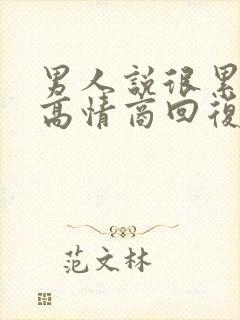 男人說很累
高情商回復
范文林